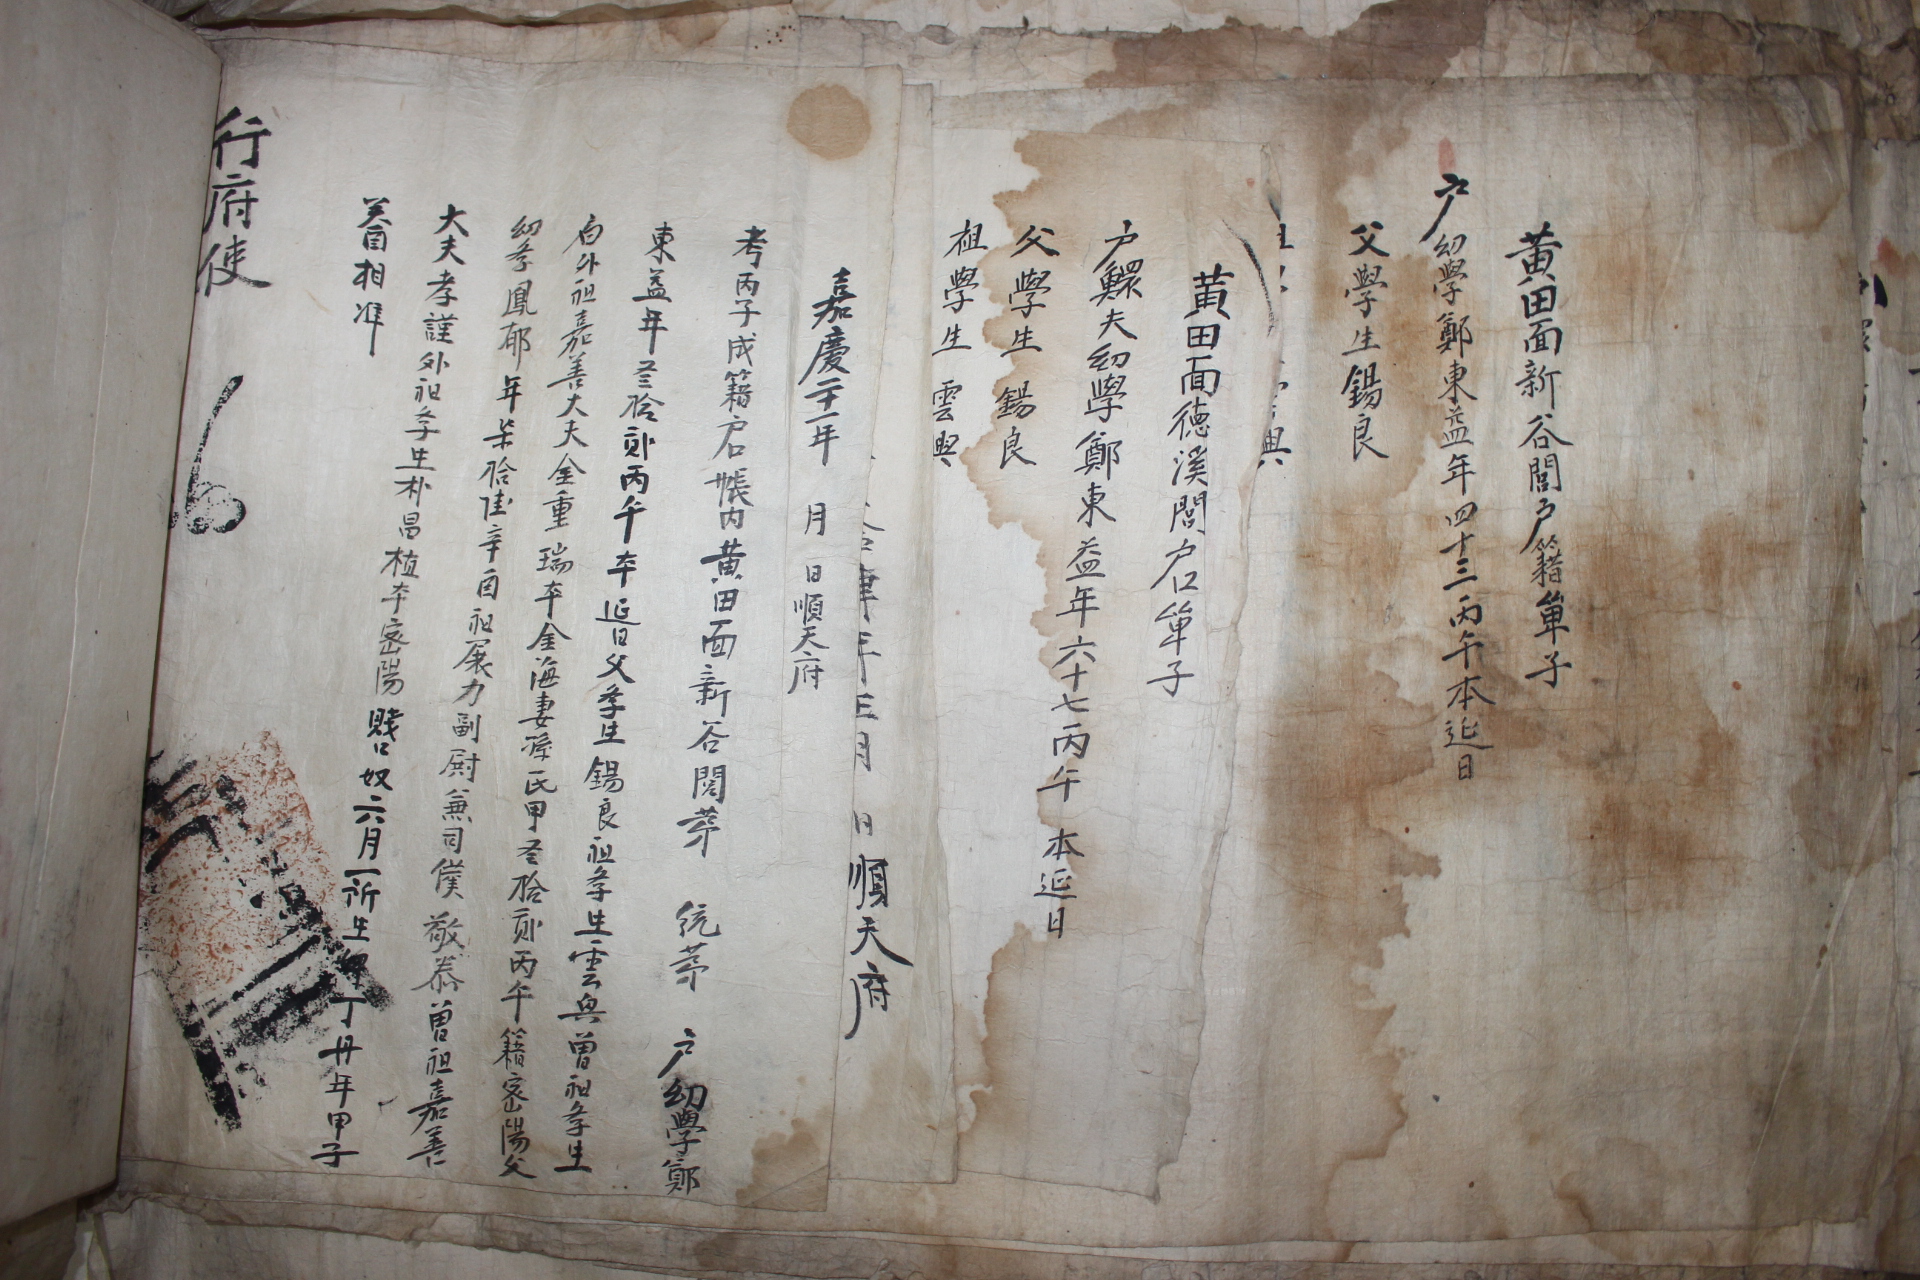 黃田面新谷閭戶籍單子
戶幼學鄭東益年四十三丙午本延日
父學生錫良
黃田面德溪閭戶口單子
戶鰥夫幼學鄭東益年六十七丙午本延日
父學生錫良
祖學生雲興
年三月 日順天府
嘉慶二十一年 月 日順天府
考丙子成籍戶帳內黃田面新谷閭第 統第 戶幼學鄭
東益年叁拾貳丙午本延日父學生錫良祖學生雲興曾祖學生
外祖嘉善大夫金重瑞本金海妻孫氏甲叁拾貳丙午籍密陽父
幼學鳳郁年柒拾陸辛酉祖展力副尉兼司僕敬恭曾祖嘉善
大夫孝謹外祖學生朴昌植本密陽賤口奴六月一所生婢丁丹年甲子
等酉相准
行府使